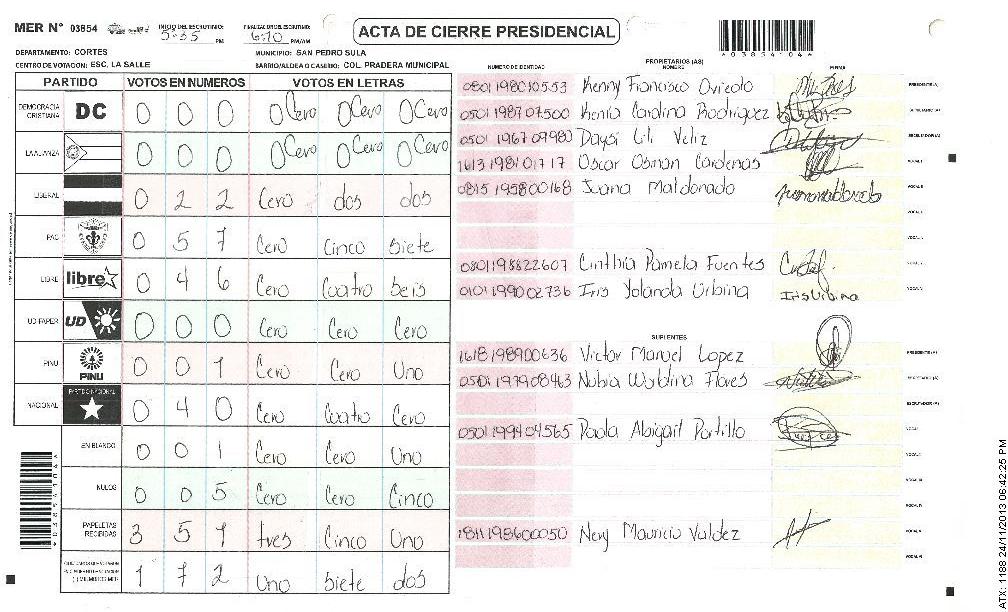 MER N° 03854 INICIO DEL ESCRUTINIO: 5:35 PM FINALIZACION DEL ESCRUTINIO: 6:10 PM/AM
ACTA DE CIERRE PRESIDENCIAL
*03854104*
DEPARTAMENTO: CORTES MUNICIPIO: SAN PEDRO SULA
CENTRO DE VOTACION: ESC. LA SALLE BARRIO/ALDEA O CASERIO: COL. PRADERA MUNICIPAL
PARTIDO VOTOS EN NUMEROS VOTOS EN LETRAS
DEMOCRACIA CRISTIANA DC 0 0 0 0Cero 0Cero 0Cero
LA ALIANZA 0 0 0 0Cero 0Cero 0Cero
LIBERAL 0 2 2 Cero dos dos
PAC 0 5 7 Cero Cinco Siete
LIBRE libre 0 4 6 Cero Cuatro Seis
UD-FAPER UD 0 0 0 Cero Cero Cero
PINU PINU 0 0 1 Cero Cero Uno
NACIONAL PARTIDO NACIONAL 0 4 0 Cero Cuatro Cero
EN BLANCO 0 0 1 Cero Cero Uno
NULOS 0 0 5 Cero Cero Cinco
PAPELETAS RECIBIDAS 3 5 1 tres Cinco Uno
1 7 2 Uno Siete dos
PROPIETARIOS (AS)
NUMERO DE IDENTIDAD NOMBRE FIRMA
0801198010553 Kenny Francisco Oviedo PRESIDENTE (A)
0501198707500 Kenia Carolina Rodriguez SECRETARIO (A)
0501196709980 Daysi Lili Veliz ESCRUTADOR (A)
1613198101717 Oscar Osman Cardenas VOCAL I
0815195800168 Juana Maldonado VOCAL II
0801198822607 Cinthia Pamela Fuentes
0101199002736 Iris Yolanda Urbina Iris Urbina
SUPLENTES
1618198900636 Victor Manuel Lopez PRESIDENTE (A)
0501197908463 Nubia Waldina Flores SECRETARIO (A)
ESCRUTADOR (A)
0501199404565 Paola Abigail Portillo VOCAL I
1811198600050 Nery Mauricio Valdez
ATX: 1188 24/11/2013 06:42:25 PM